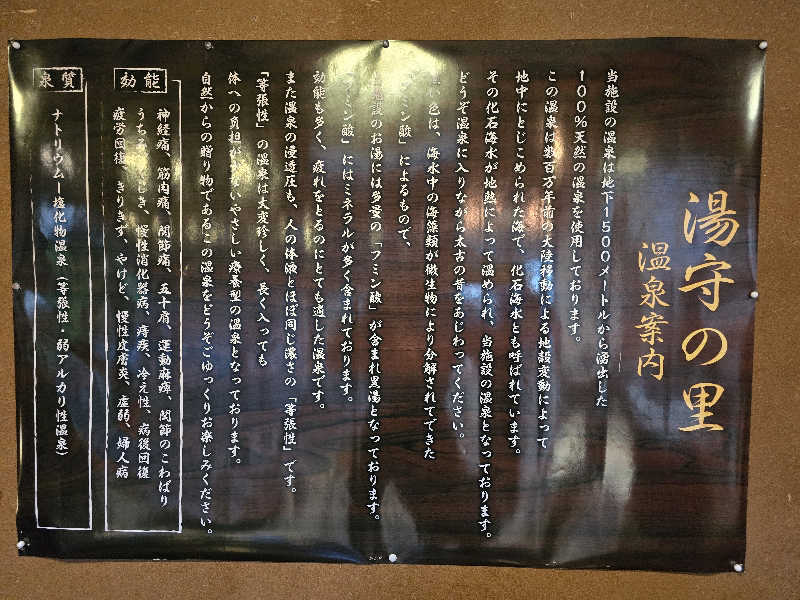 湯守の里
温泉案内
当施設の温泉は地下1500メートルから湧出した
100%天然の温泉を使用しております。
この温泉は数百万年前の大陸移動による地殻変動によって
地中にとじこめられた海で、化石海水とも呼ばれています。
その化石海水が地熱によって温められ、当施設の温泉となっております。
どうぞ温泉に入りながら太古の昔をあじわってください。
い色は、海水中の海藻類が微生物により分解されてできた
ミン酸」によるもので、
施設のお湯には多量の「フミン酸」が含まれ黒湯となっております。
フミン酸」にはミネラルが多く含まれております。
効能も多く、疲れをとるのにとても適した温泉です。
また温泉の浸透圧も、人の体液とほぼ同じ濃さの「等張性」です。
「等張性」の温泉は大変珍しく、長く入っても
体への負担が少ないやさしい療養型の温泉となっております。
自然からの贈り物であるこの温泉をどうぞごゆっくりお楽しみください。
効能
神経痛、筋肉痛、関節痛、五十肩、運動麻痺、関節のこわばり
うちみ、くじき、慢性消化器病、痔疾、冷え性、病後回復
疲労回復、きりきず、やけど、慢性皮膚炎、虚弱、婦人病
泉質
ナトリウムー塩化物温泉(等張性・弱アルカリ性温泉)